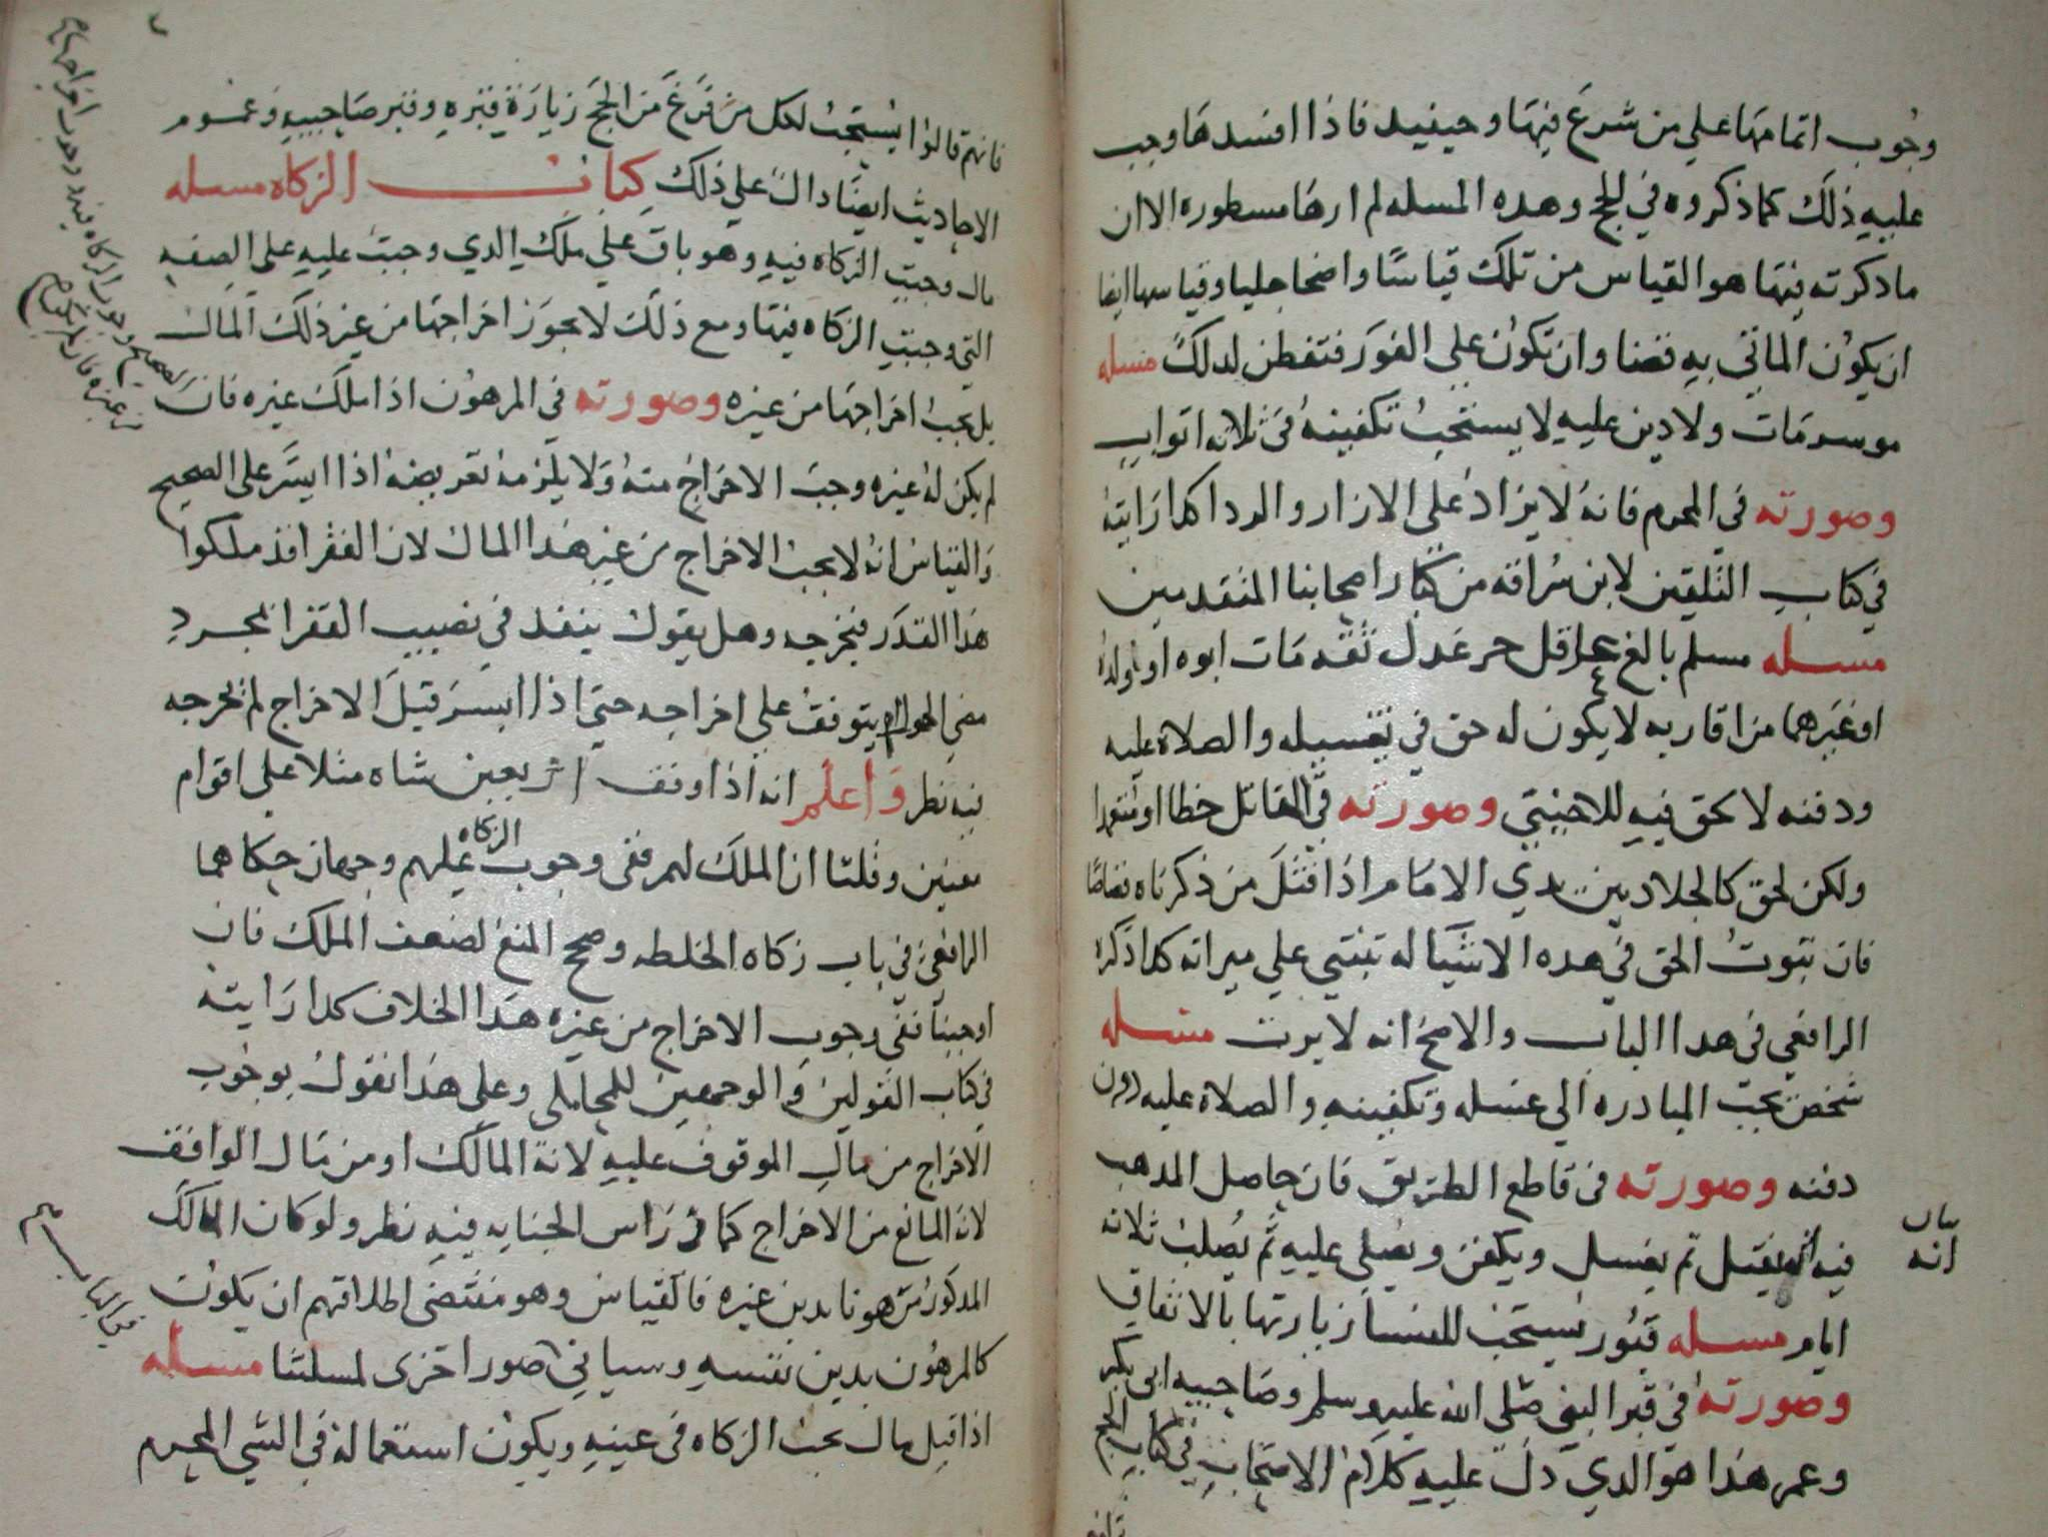 وجوب اتمامها علي من شرع فيها وحينيد فاذا افسدها وجب
عليه ذلك كما ذكروه في الحج وهده المسله لم ارها مسطوره الا ان
ما دكرته فيها هو القياس من تلك قياسا واضحا جليا وقياسها ايضا
ان يكون الماتي به قضا وان تكون علي الفور فتفطن لدلك مسله
موسر مات ولا دين عليه لا يستحب تكفينه في ثلاثه اثواب
وصورته في المحرم فانه لا يزاد علي الازار والردا كذا رايته
في كتاب التلقين لابن سراقه من كبار اصحابنا المتقدمين
مسله مسلم بالغ عاقل حر عدل ثقه مات ابوه او ولده
او غيرهما من اقاربه لا يكون له حق في تغسيله والصلاة عليه
ودفنه لا بحق فيه للاجنبي وصورته في القاتل خطا او
ولكن لحق كالجلاد بين يدي الامام اذا قتل من ذكرناه قصاصا
فان ثبوت الحق في هده الاشيا له تبتني علي ميراثه كذا ذكره
الرافعي في هدا الباب والاصح انه لا يرث مسله
شخص يجب المبادره الي غسله وتكفينه والصلاة عليه دون
دفنه وصورته في قاطع الطريق فان حاصل المدهب
فيه انه يقتل ثم يغسل ويكفن ويصلي عليه ثم يصلب ثلاثة
بيان
انه
ايام مسله قبور يستحب للنسا زيارتها بالاتفاق
وصورته في قبر النبي صلي الله عليه وسلم وصاحبيه ابي بكر
وعمر هذا هو الدي دل عليه كلام الاصحاب في كتاب الحج
فانهم
فانهم قالوا يستحب لكل من فرغ من الحج زيارة قبره وقبر صاحبيه وعموم
الاحاديث ايضا دال علي ذلك كتاب الزكاه مسله
مال وجبت الزكاه فيه وهو باق علي ملك الدي وجبت عليه علي الصفه
التي وجبت الزكاه فيها ومع ذلك لا يجوز اخراجها من غير ذلك المال
بل يجب اخراجها من غيره وصورته في المرهون اذا ملك غيره فان
لم يكن له غيره وجب الاخراج منه ولا يلزمه تعويضه اذا ايسر علي الصحيح
والقياس انه لا يجب الاخراج من غير هدا المال لان الفقرا قد ملكوا
هذا القدر فيخرجه وهل يقول ينفد في نصيب الفقرا بمجرد
مضي الحول ام يتوقف علي اخراجه حتي اذا ايسر قبل الاخراج لم يخرجه
فيه نظر واعلم انه اذا وقف اربعين شاه مثلا علي اقوام
معينين وقلنا ان الملك لهم ففي وجوب الزكاه عليهم وجهان حكاهما
الرافعي في باب زكاه الخلطه وصحح المنع لضعف الملك فان
اوجبنا ففي وجوب الاخراج من غيره هدا الخلاف كدا رايته
في كتاب القولين والوجهين للمحاملي وعلي هذا نقول بوجوب
الاخراج من مال الموقوف عليه لانه المالك او من مال الواقف
لانه المانع من الاخراج كما في راس الجنايه فيه نظر ولو كان المالك
المدكور مرهونا بدين غيره فالقياس وهو مقتضي اطلاقهم ان يكون
كالمرهون بدين نفسه وسياتي صور اخري لمسلتنا مسله
اذا قيل مال تجب الزكاه في عينه ويكون استعماله في الشي المحرم